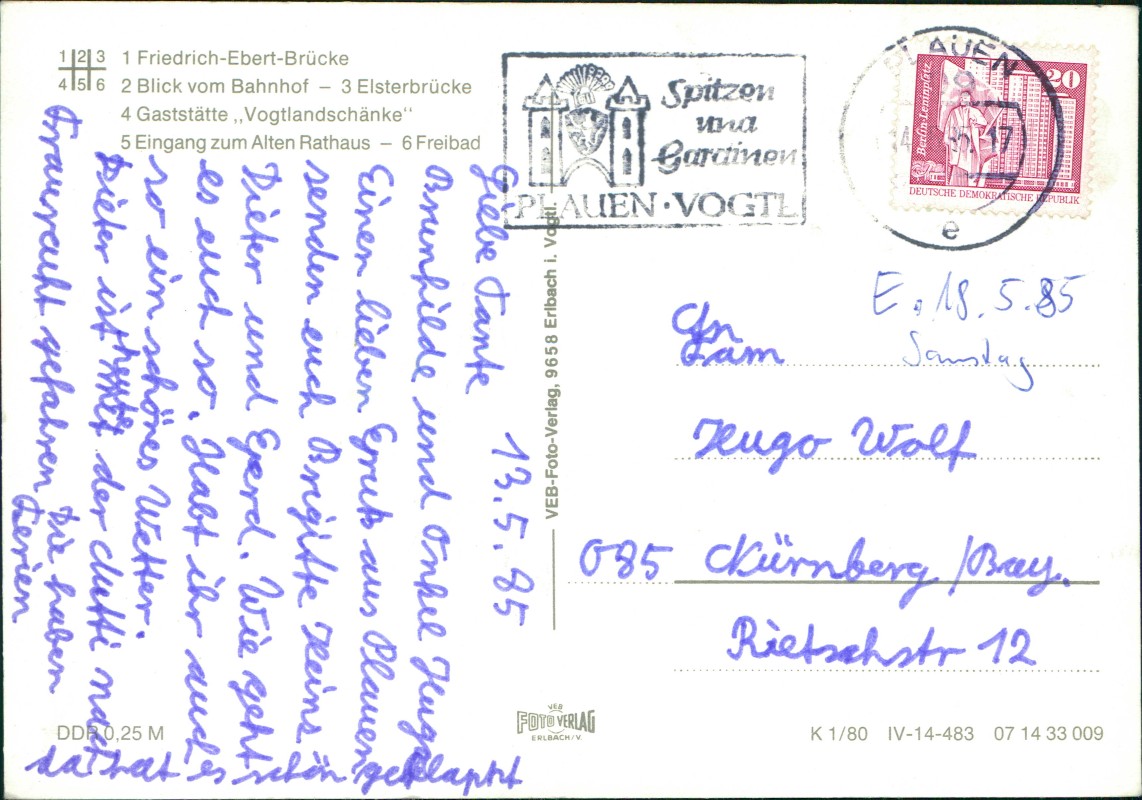 1 2 3
4 5 6
1 Friedrich-Ebert-Brücke
2 Blick vom Bahnhof – 3 Elsterbrücke
4 Gaststätte ,,Vogtlandschänke‘‘
5 Eingang zum Alten Rathaus – 6 Freibad
Spitzen
und
Gardinen
PLAUEN·VOGTL
PLAUEN
17
e
20
Berlin-Leninplatz
DDR
DEUTSCHE DEMOKRATISCHE REPUBLIK
13.5.85
Liebe Tante
Brunhilde und Onkel Hugo
Einen lieben Gruß aus Plauen
senden euch Brigitte Heins-
Dieter und Gerd. Wie geht
es euch so. Habt ihr auch
so ein schönes Wetter.
Dieter ist heute mit der Mutti nach
Fraureuth gefahren Die haben
Ferien
da hat es schön geklappt
VEB-Foto-Verlag, 9658 Erlbach i. Vogtl.
E. 18.5.85
Samstag
An
Fam
Hugo Wolf
085 Nürnberg /Bay.
Rietschstr 12
DDR 0,25 M
VEB
FOTO VERLAG
ERLBACH/V.
K 1/80 IV-14-483 07 14 33 009